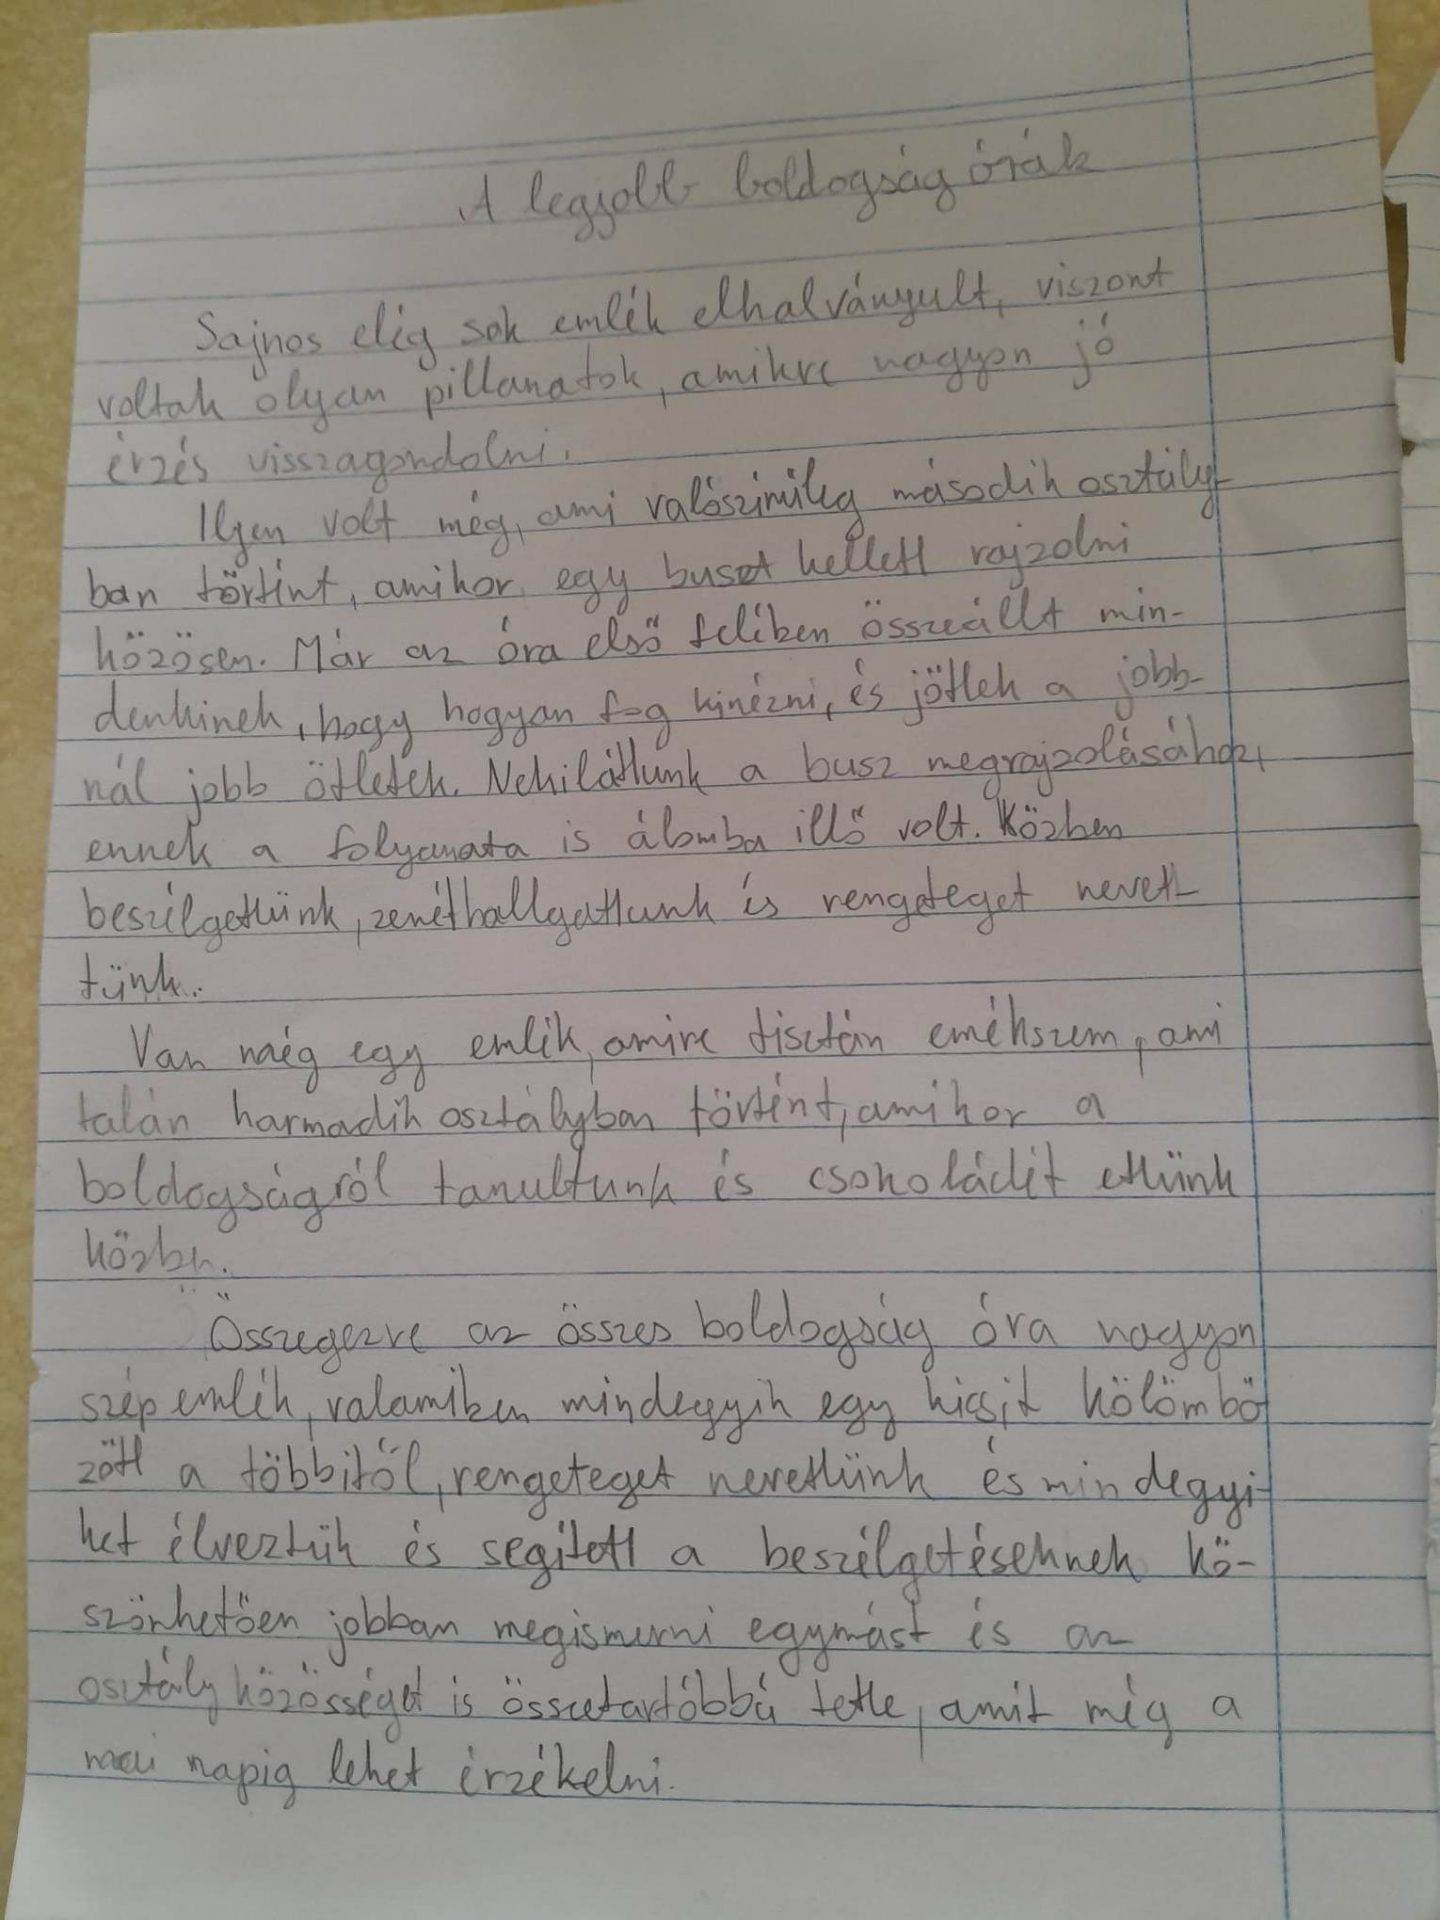 A legjobb boldogság órák
Sajnos elég sok emlék elhalványult, viszont
voltak olyan pillanatok, amikre nagyon jó
érzés visszagondolni.
Ilyen volt még, ami valószinűleg második osztály-
ban történt, amikor egy buszt kellett rajzolni
közösen. Már az óra első felében összeállt min-
denkinek, hogy hogyan fog kinézni, és jöttek a jobb-
nál jobb ötletek. Nekiláttunk a busz megrajzolásához,
ennek a folyamata is álomba illő volt. Közben
beszélgettünk, zenéthallgattunk és rengeteget nevet-
tünk.
Van még egy emlék, amire tisztán emékszem, ami
talán harmadik osztályban történt, amikor a
boldogságról tanultunk és csokoládét ettünk
közbn.
Összegezve az összes boldogság óra nagyon
szép emlék, valamiben mindegyik egy kicsit kölömbö
zött a többitől, rengeteget nevettünk és mindegyi-
ket élveztük és segített a beszélgetéseknek kö-
szönhetően jobban megismerni egymást és az
osztály közösséget is összetartóbbá tette, amit még a
mai napig lehet érzékelni.